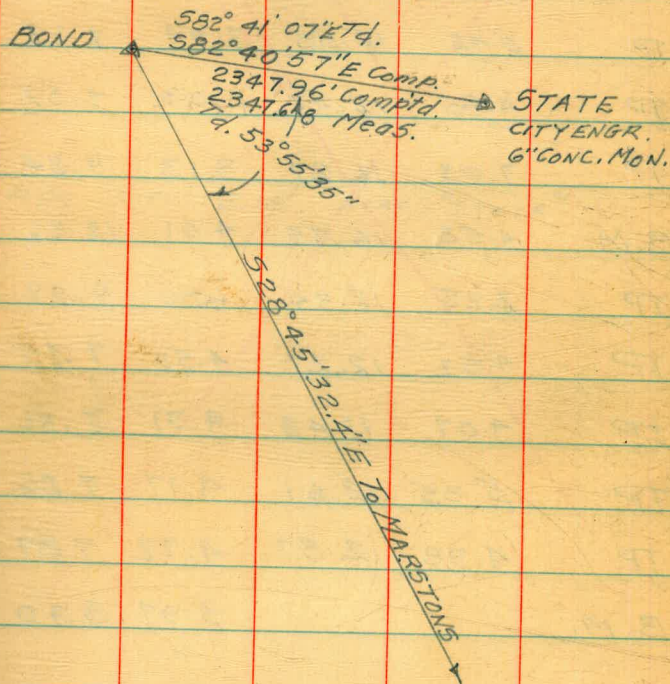 BOND
S82° 41' 07"E Td.
S82° 40' 57" E Comp.
2347.96' Comptd.
2347.68 Meas.
Td. 53°55'35"
STATE
CITY ENGR.
6" CONC. MON.
S28°45'32.4"E To MARSTONS